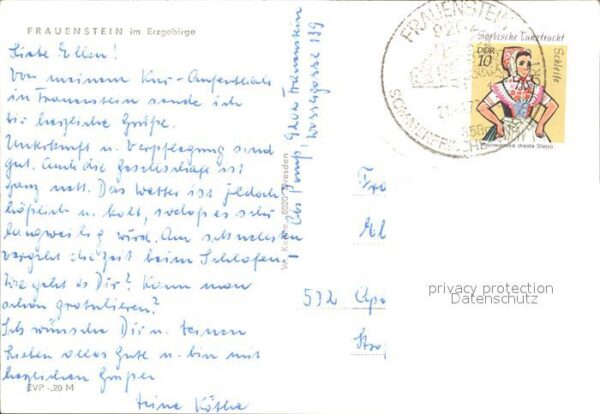 FRAUENSTEIN im Erzgebirge
Liebe Ellen!
Von meinem Kur-Aufenthalt
in Frauenstein sende ich
Dir herzliche Grüße.
Unterkunft u. Verpflegung sind
gut. Auch die Gesellschaft ist
ganz nett. Das Wetter ist jedoch
häßlich u. kalt, sodaß es sehr
langweilig wird. Am schnellsten
vergeht die Zeit beim Schlafen.
Wie geht es Dir? Kann man
schon gratulieren?
Ich wünsche Dir u. Deinen
Lieben alles Gute u. bin mit
herzlichen Grüßen
Deine Käthe
EVP -,20 M
Frauenstein
Wassergasse 139
8020 Dresden
FRAUENSTEIN
SOMMERFRISCHE
Sorbische Tanztracht
DDR
10
Schleife
drasta Slepo
532
privacy protection
Datenschutz